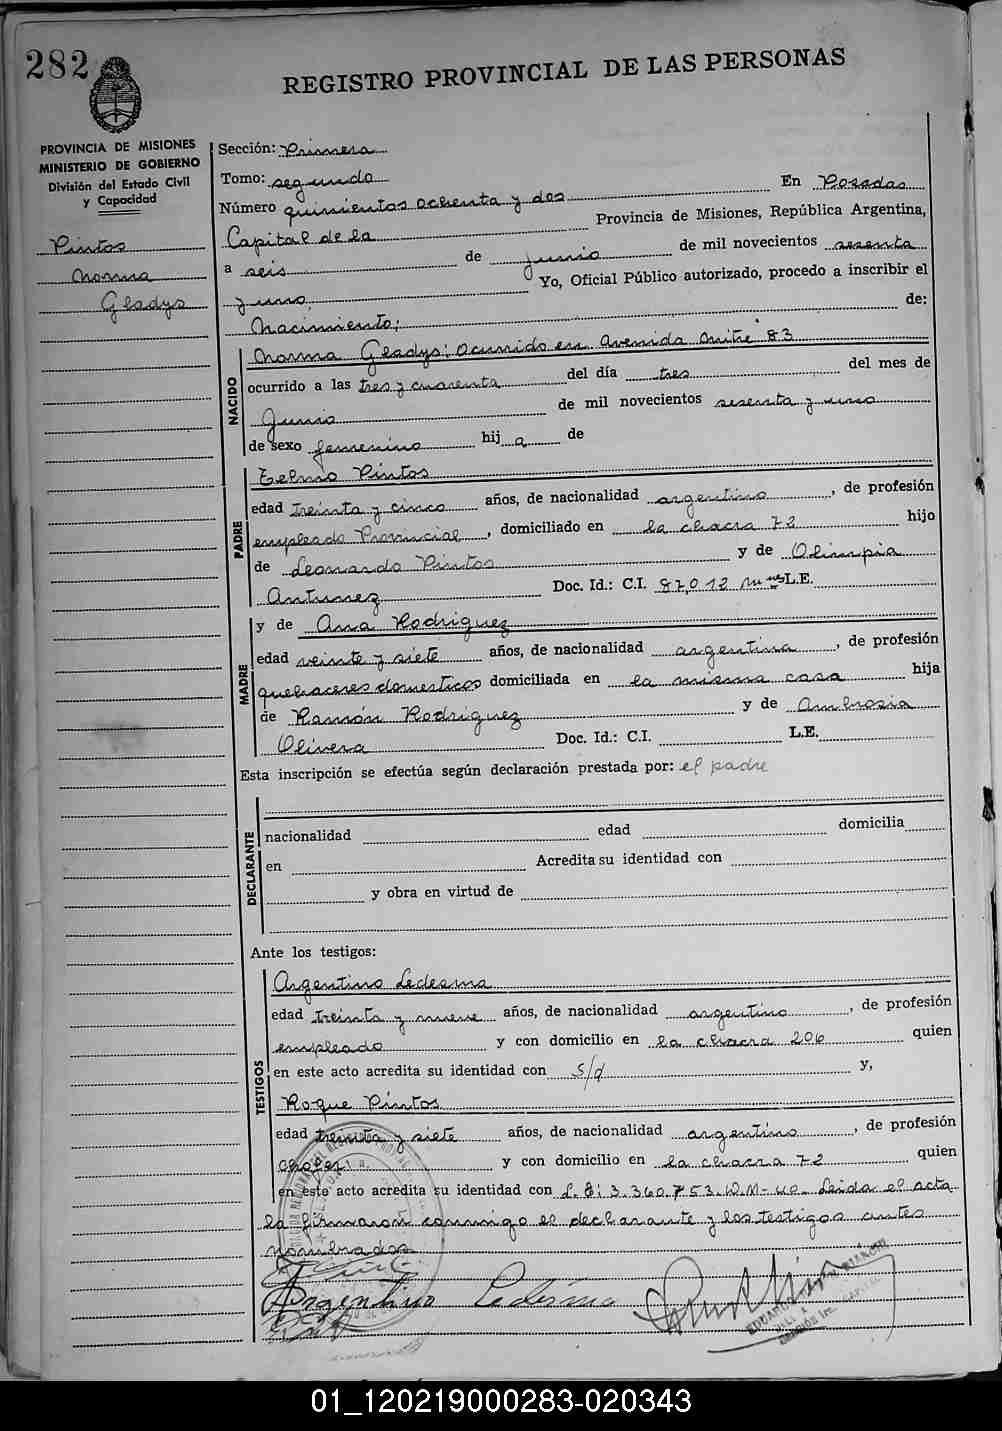 282
REGISTRO PROVINCIAL DE LAS PERSONAS
PROVINCIA DE MISIONES
MINISTERIO DE GOBIERNO
División del Estado Civil
y Capacidad
Pintos
Norma
Gladys
Sección: Primera
Tomo: segundo
Número quinientos ochenta y dos En Posadas
Capital de la Provincia de Misiones, República Argentina,
a seis de junio de mil novecientos sesenta
y uno Yo, Oficial Público autorizado, procedo a inscribir el
Nacimiento; de:
NACIDO
Norma Gladys: Ocurrido en Avenida Mitre 83
ocurrido a las tres y cuarenta del día tres del mes de
Junio de mil novecientos sesenta y uno
de sexo femenino hij a de
PADRE
Telmo Pintos
edad treinta y cinco años, de nacionalidad argentino, de profesión
empleado Provincial, domiciliado en la chacra 72 hijo
de Leonardo Pintos y de Olimpia
Antunez Doc. Id.: C.I. 87,012 L.E.
MADRE
y de Ana Rodriguez
edad veinte y siete años, de nacionalidad argentina, de profesión
quehaceres domesticos domiciliada en la misma casa hija
de Ramón Rodriguez y de Ambrosia
Olivera Doc. Id.: C.I. L.E.
Esta inscripción se efectúa según declaración prestada por: el padre
DECLARANTE
nacionalidad edad domicilia
en Acredita su identidad con
y obra en virtud de
Ante los testigos:
TESTIGOS
Argentino Ledesma
edad treinta y nueve años, de nacionalidad argentino, de profesión
empleado y con domicilio en la chacra 206 quien
en este acto acredita su identidad con s/d y,
Roque Pintos
edad treinta y siete años, de nacionalidad argentino, de profesión
chofer y con domicilio en la chacra 72 quien
en este acto acredita su identidad con L.E: 3.360.753.D.M-40. Leida el acta
la firmaron conmigo el declarante y los testigos antes
nombrados
Argentino Ledesma
01_120219000283-020343